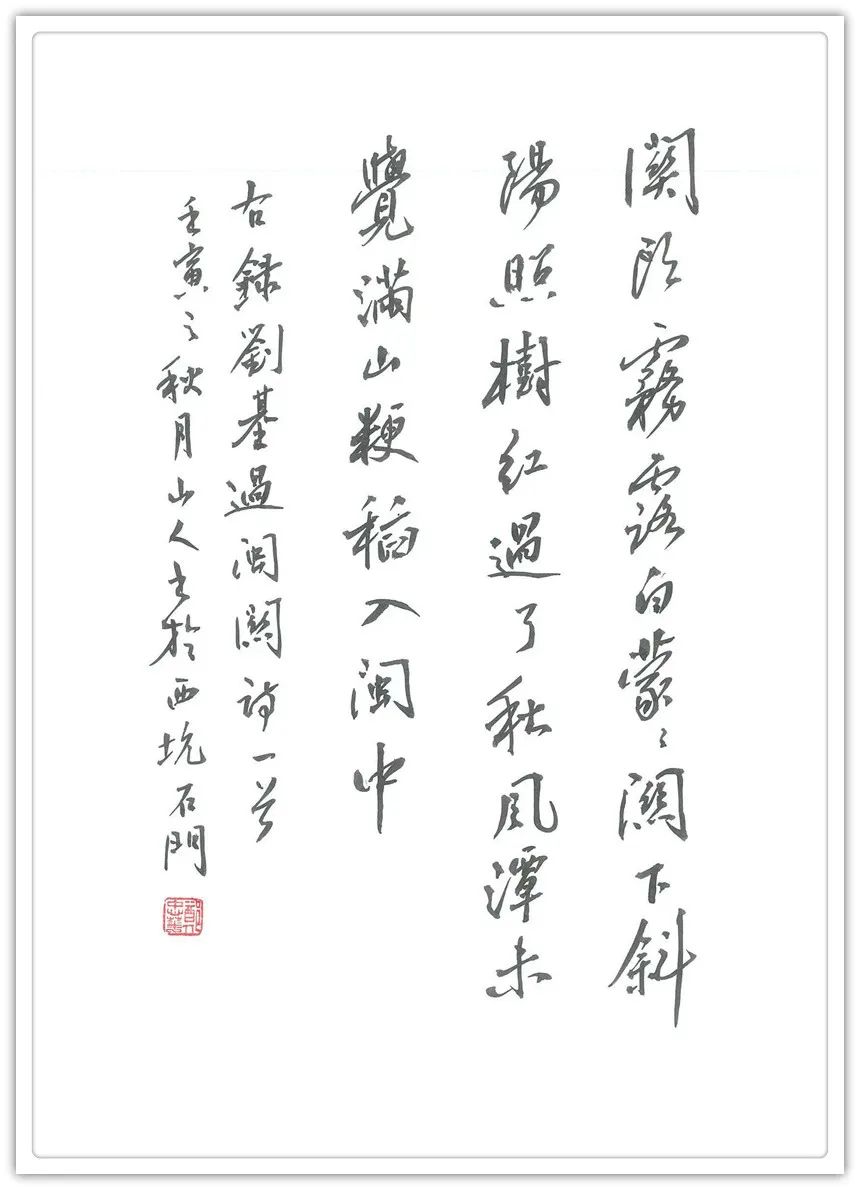 關頭霧露白蒙〻關下斜
陽照樹紅過了秋風潭未
覺滿山粳稻入閩中
右錄劉基過閩關詩一首
壬寅之秋月山人书於西坑石門